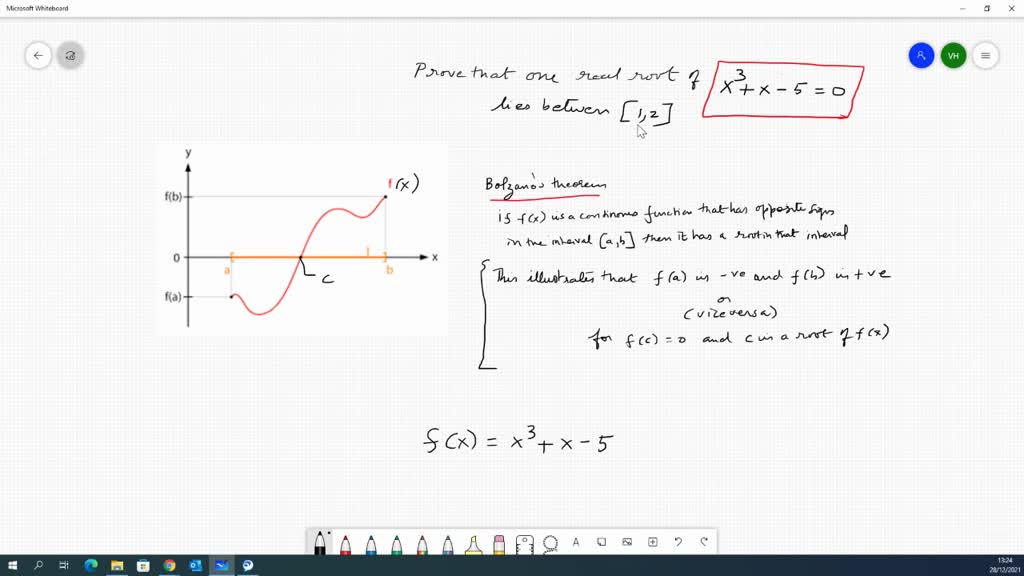 Microsoft Whiteboard
VH
Prove that one real root of x³ + x - 5 = 0
lies between [1,2]
y
f(b)
f(x)
0
a
b
x
c
f(a)
Bolzano's theorem
if f(x) is a continuous function that has opposite signs
in the interval [a,b] then it has a root in that interval
This illustrates that f(a) is -ve and f(b) is +ve
or
(viceversa)
for f(c) = 0 and c is a root of f(x)
f(x) = x³ + x - 5
A
13:24
28/12/2021